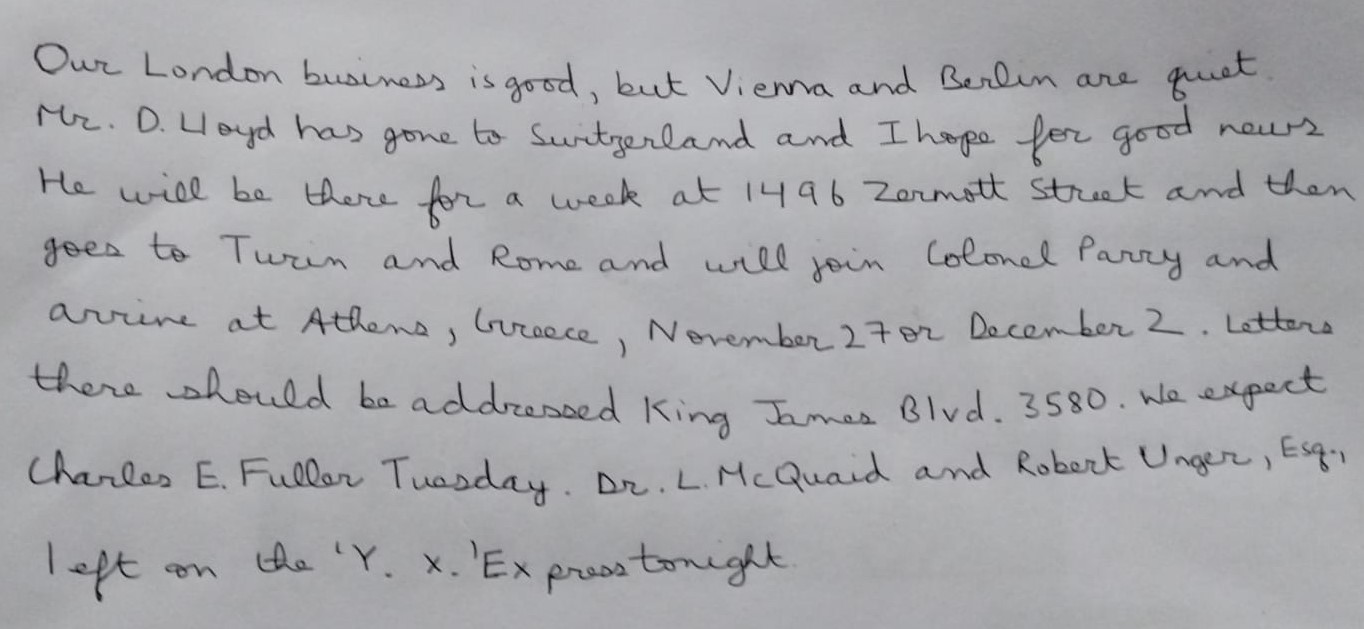 Our London business is good, but Vienna and Berlin are quiet.
Mr. D. Lloyd has gone to Switzerland and I hope for good news
He will be there for a week at 1496 Zermott Street and then
goes to Turin and Rome and will join Colonel Parry and
arrive at Athens, Greece, November 27 or December 2. Letters
there should be addressed King James Blvd. 3580. We expect
Charles E. Fuller Tuesday. Dr. L. McQuaid and Robert Unger, Esq.,
left on the 'Y. X.' Express tonight.